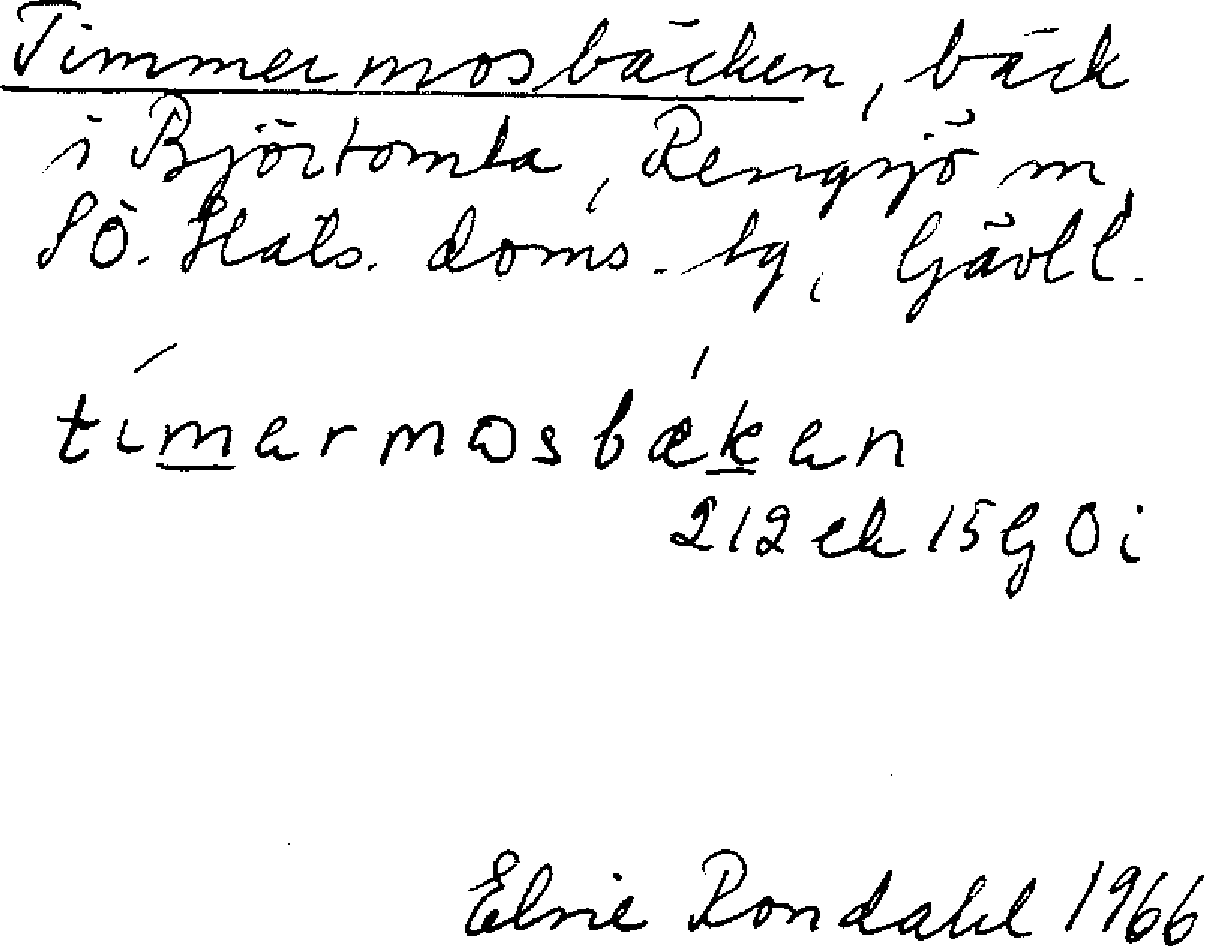 Timmermosbäcken, bäck
i Björtomta, Rengsjö sn,
SÖ. Häls. doms. tg, Gävl l.
tìmarmosbǽkan
212 ek 15G Oi
Elvie Rondahl 1966